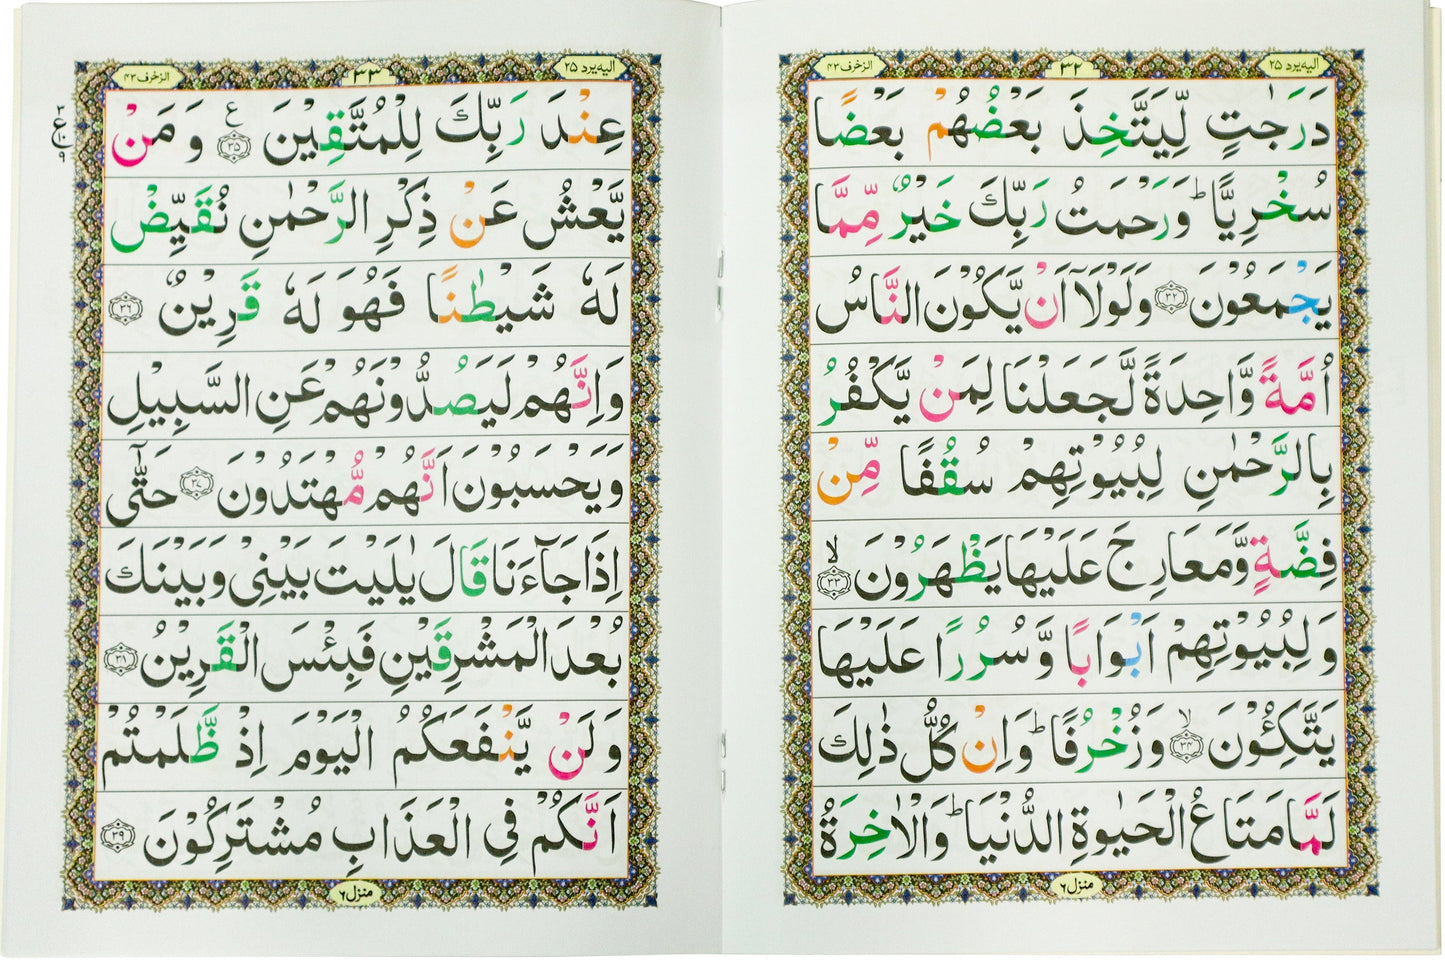 الیه یرد ۲۵
۳۲
الزخرف ۴۳
دَرَجٰتٍ لِّيَتَّخِذَ بَعْضُهُمْ بَعْضًا
سُخْرِيًّا ؕ وَرَحْمَتُ رَبِّكَ خَيْرٌ مِّمَّا
يَجْمَعُوْنَ ﴿۳۲﴾ وَلَوْلَاۤ اَنْ يَّكُوْنَ النَّاسُ
اُمَّةً وَّاحِدَةً لَّجَعَلْنَا لِمَنْ يَّكْفُرُ
بِالرَّحْمٰنِ لِبُيُوْتِهِمْ سُقُفًا مِّنْ
فِضَّةٍ وَّمَعَارِجَ عَلَيْهَا يَظْهَرُوْنَ ﴿۳۳﴾ ۙ
وَلِبُيُوْتِهِمْ اَبْوَابًا وَّسُرُرًا عَلَيْهَا
يَتَّكِـُٔوْنَ ﴿۳۴﴾ ۙ وَزُخْرُفًا ؕ وَاِنْ كُلُّ ذٰلِكَ
لَمَّا مَتَاعُ الْحَيٰوةِ الدُّنْيَا ؕ وَالْاٰخِرَةُ
منزل ۶
الیه یرد ۲۵
۳۳
الزخرف ۴۳
عِنْدَ رَبِّكَ لِلْمُتَّقِيْنَ ﴿۳۵﴾ ع وَمَنْ
۳
ع
۱۰
۹
يَّعْشُ عَنْ ذِكْرِ الرَّحْمٰنِ نُقَيِّضْ
لَهٗ شَيْطٰنًا فَهُوَ لَهٗ قَرِيْنٌ ﴿۳۶﴾
وَاِنَّهُمْ لَيَصُدُّوْنَهُمْ عَنِ السَّبِيْلِ
وَيَحْسَبُوْنَ اَنَّهُمْ مُّهْتَدُوْنَ ﴿۳۷﴾ حَتّٰٓى
اِذَا جَآءَنَا قَالَ يٰلَيْتَ بَيْنِيْ وَبَيْنَكَ
بُعْدَ الْمَشْرِقَيْنِ فَبِئْسَ الْقَرِيْنُ ﴿۳۸﴾
وَلَنْ يَّنْفَعَكُمُ الْيَوْمَ اِذْ ظَّلَمْتُمْ
اَنَّكُمْ فِي الْعَذَابِ مُشْتَرِكُوْنَ ﴿۳۹﴾
منزل ۶